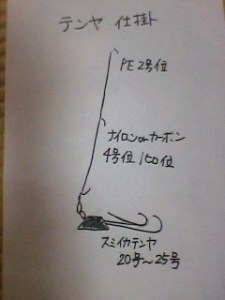 テンヤ 仕掛
PE 2号位
ナイロンorカーボン
4号位 150位
スミイカテンヤ
20号〜25号